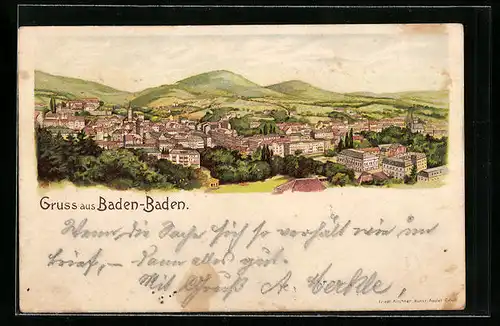 Gruss aus Baden-Baden.
Wenn die Sache sich so verhält wie im
Brief, – dann alles gut.
Mit Gruß A. Merkle,